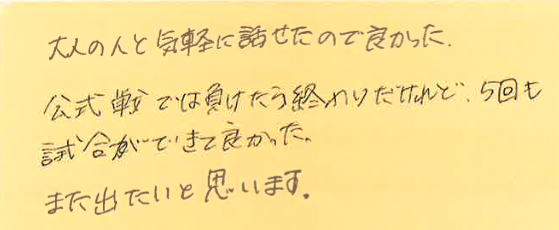 大人の人と気軽に話せたので良かった.
公式戦では負けたら終わりだけれど、5回も
試合ができて良かった。
また出たいと思います。